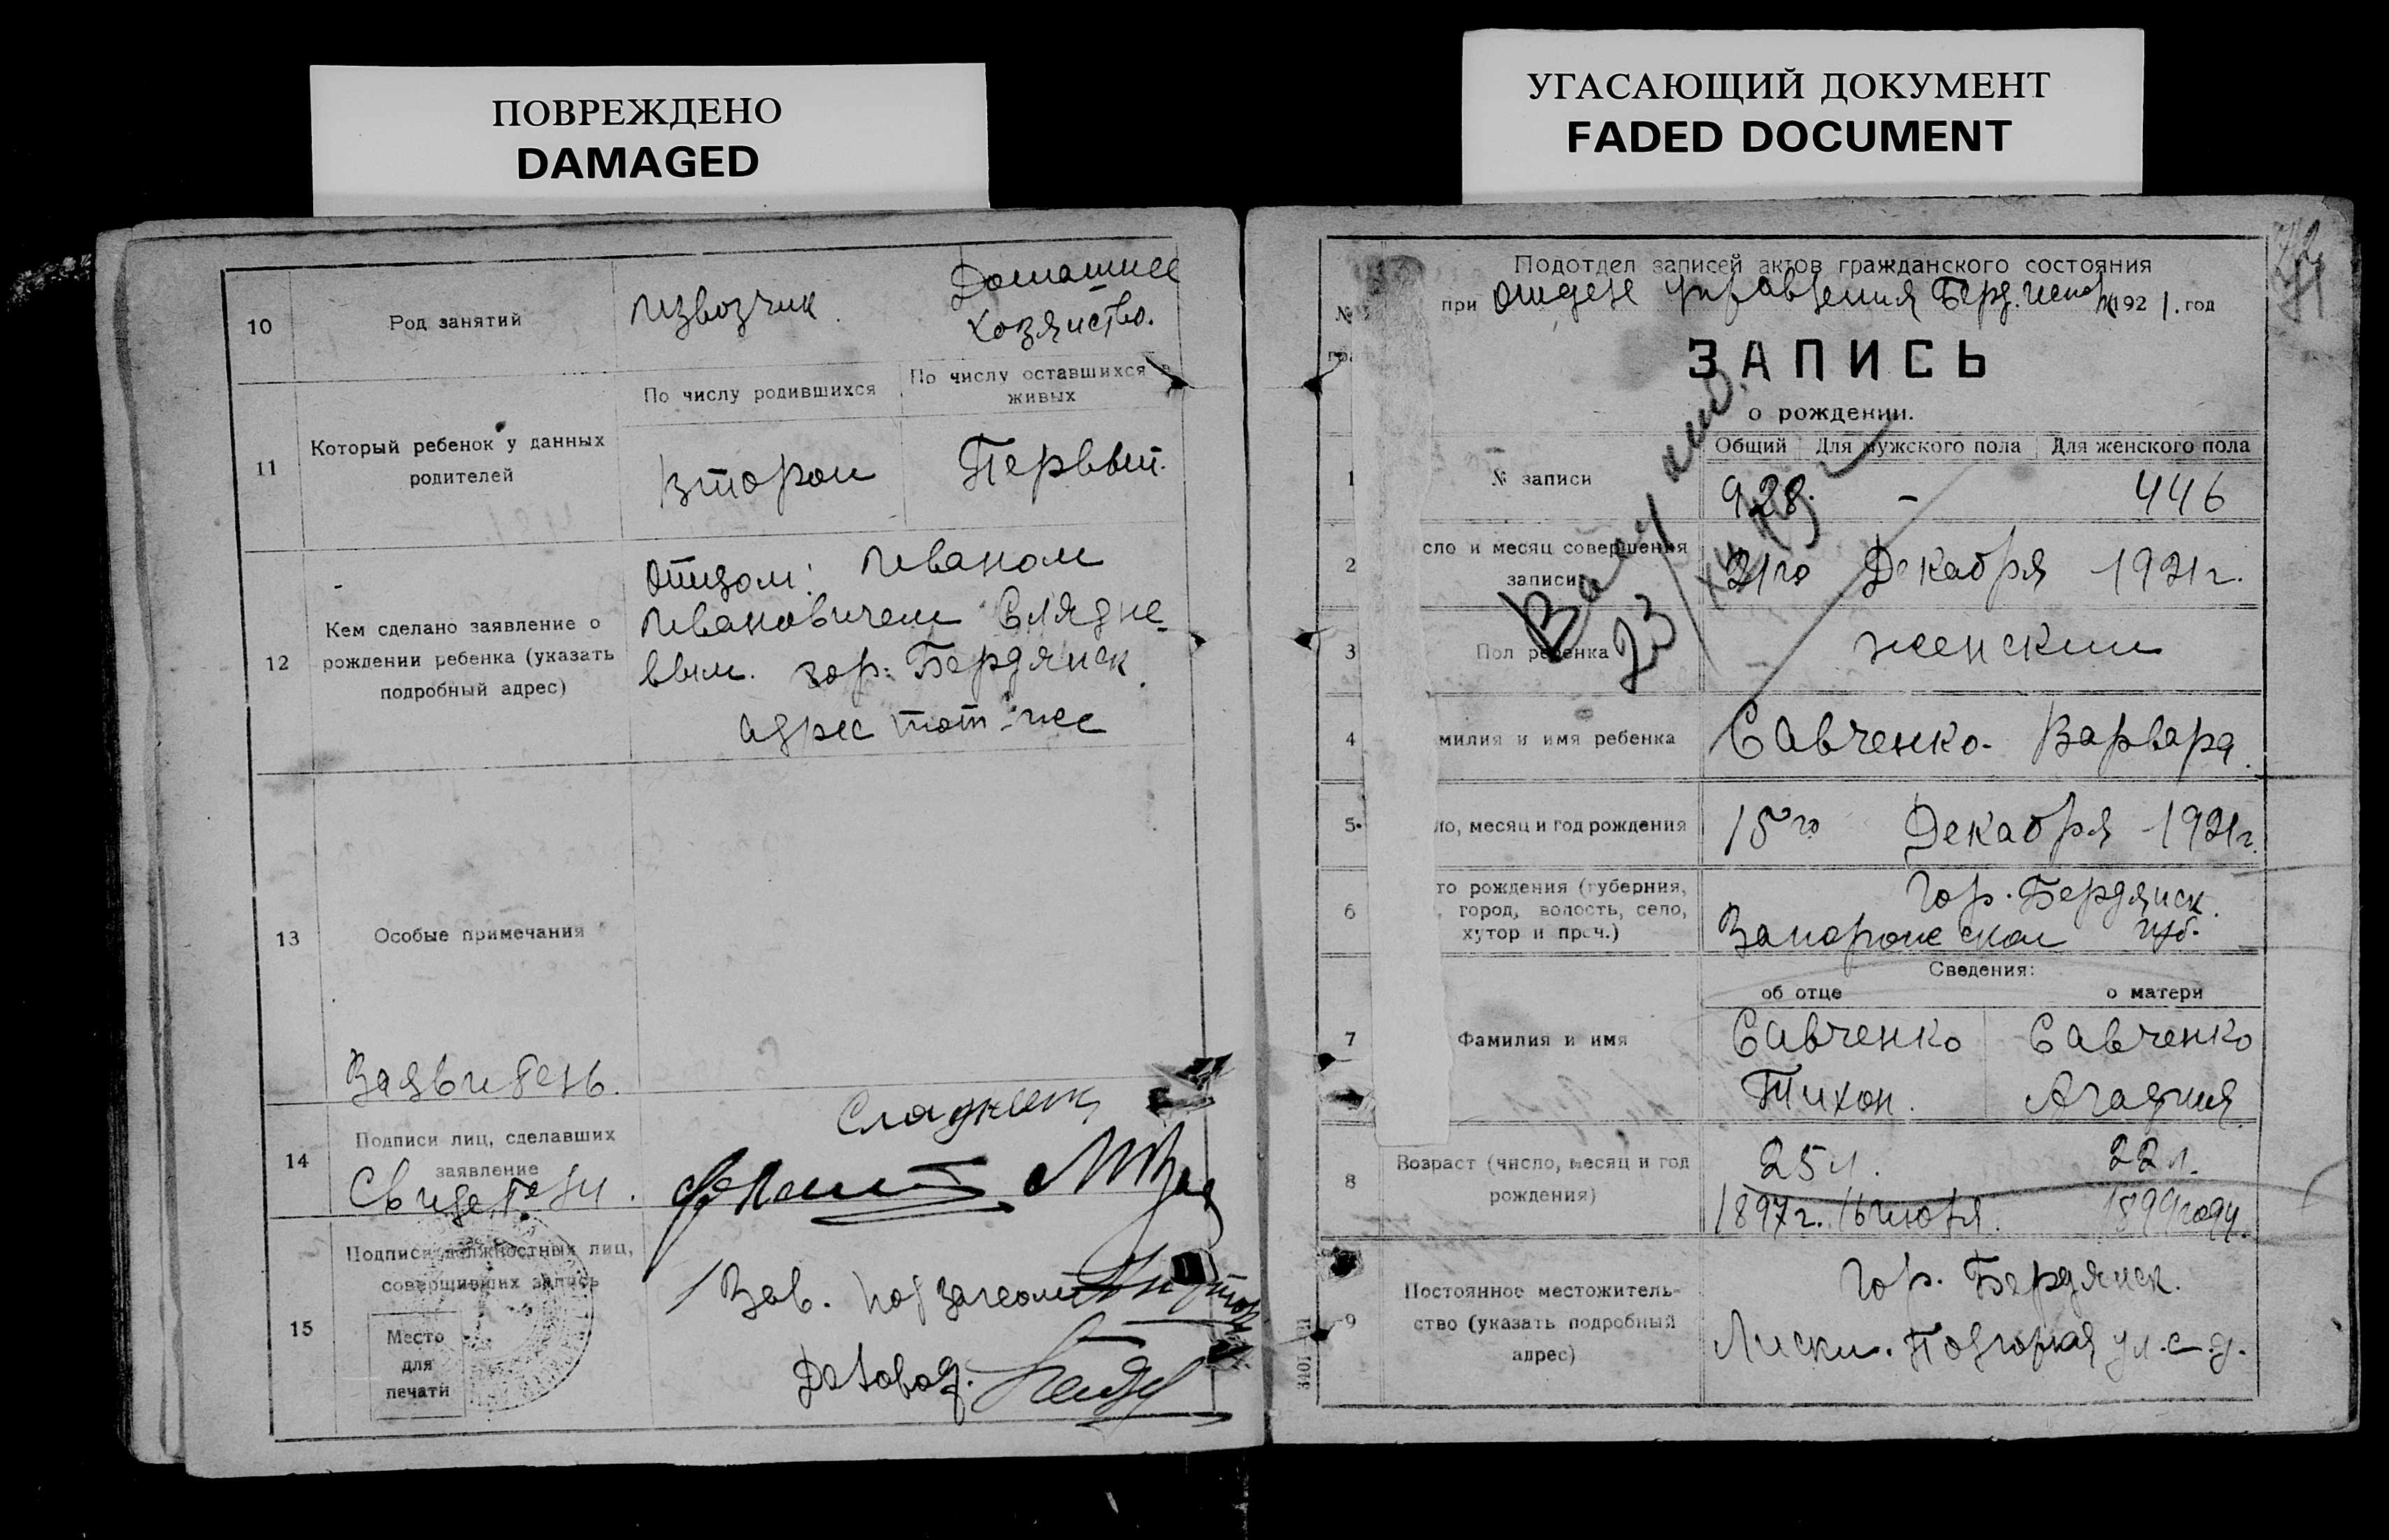 ПОВРЕЖДЕНО
DAMAGED
УГАСАЮЩИЙ ДОКУМЕНТ
FADED DOCUMENT
10
Род занятий
Извозчик.
Домашнее
хозяйство.
11
Который ребенок у данных
родителей
По числу родившихся
По числу оставшихся в
живых
второй
Первый.
12
Кем сделано заявление о
рождении ребенка (указать
подробный адрес)
Отцом: Иваном
Ивановичем Слядне-
вым. гор. Бердянск.
адрес тот-же
13
Особые примечания
Заявитель.
14
Подписи лиц, сделавших
заявление
Свидетели.
15
Подписи должностных лиц,
совершивших запись
Место
для
печати
Зав. подзагсом
Деловод.
Подотдел записей актов гражданского состояния
№
при Отделе Управления Берд. 1921. год
ЗАПИСЬ
о рождении.
1
№ записи
Общий
Для мужского пола
Для женского пола
928.
-
446
2
сло и месяц совершения
записи
21го Декабря 1921г.
3
Пол ребенка
женский
4
милия и имя ребенка
Савченко- Варвара.
5
ло, месяц и год рождения
15го Декабря 1921г.
6
то рождения (губерния,
город, волость, село,
хутор и проч.)
Гор. Бердянск.
Запорожской губ.
Сведения:
об отце
о матери
7
Фамилия и имя
Савченко
Тихон.
Савченко
Агафия
8
Возраст (число, месяц и год
рождения)
25 л.
22 л.
1897г. 16 июня.
1899 году.
9
Постоянное местожитель-
ство (указать подробный
адрес)
Гор. Бердянск.
Лиски. Подгорная ул. с.д.
3401